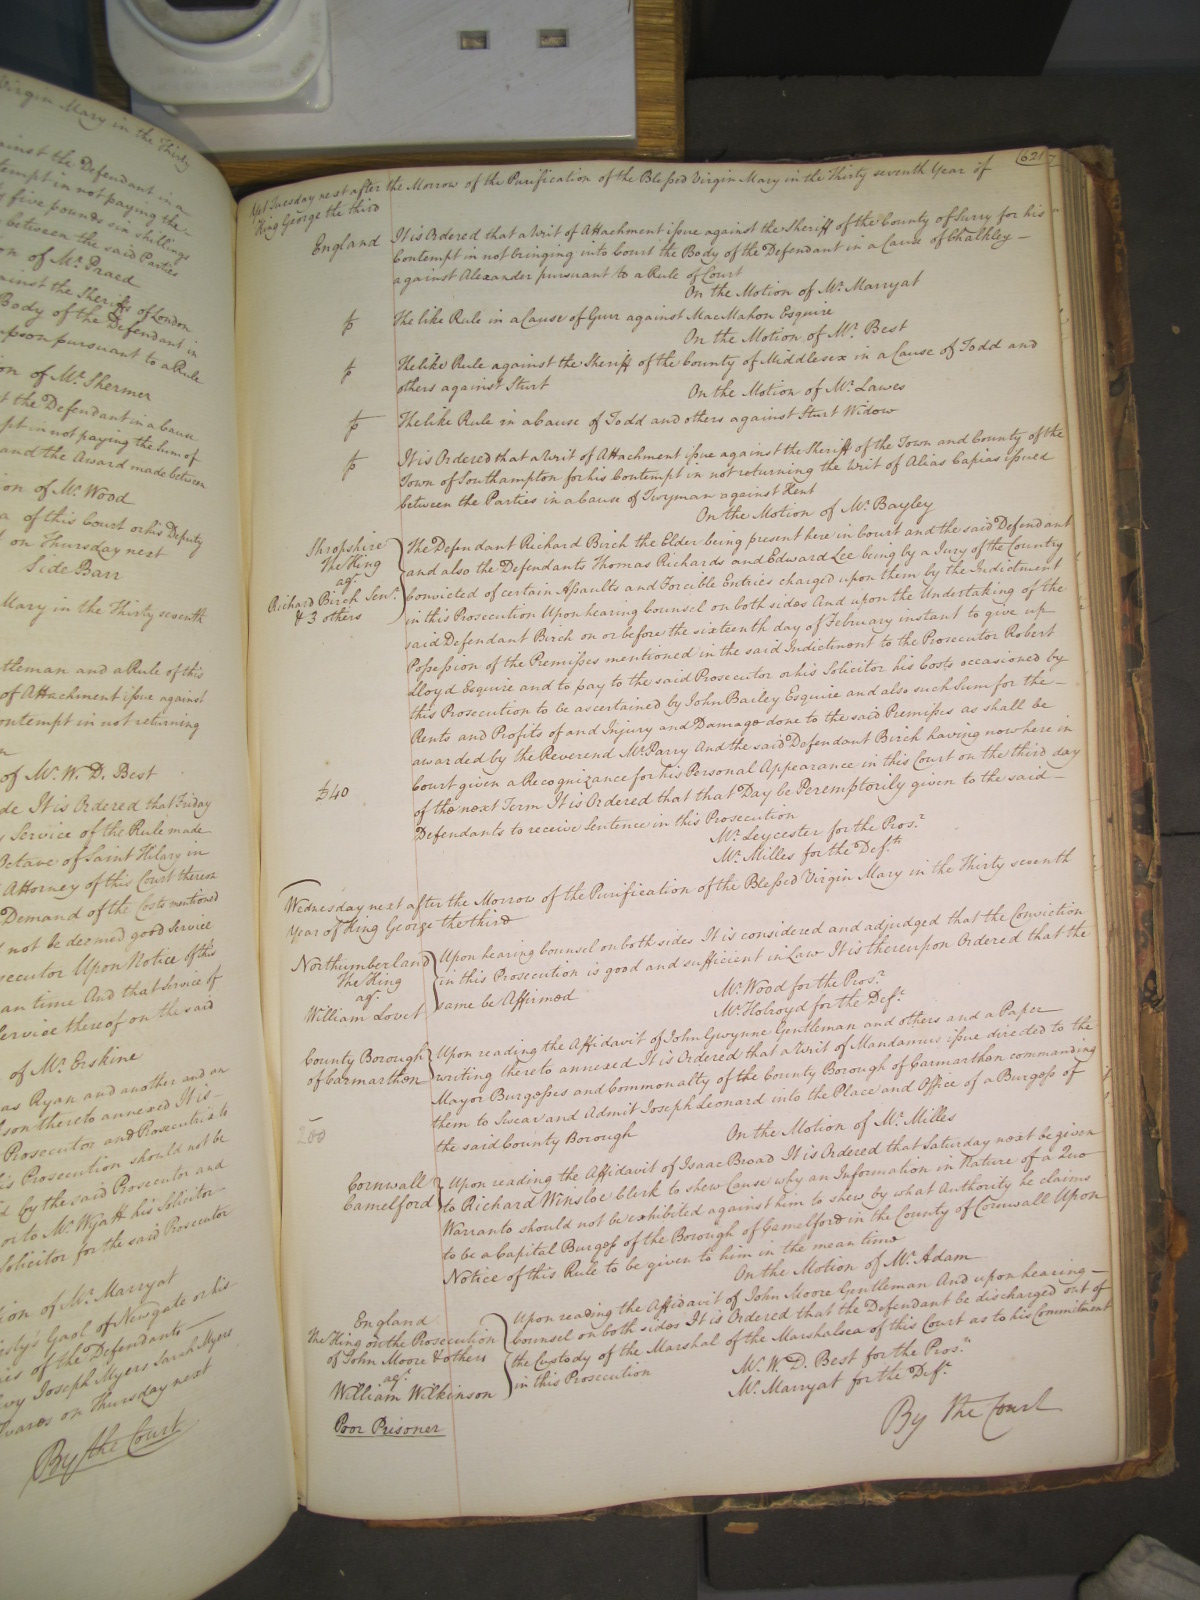 Virgin Mary in the Thirty
against the Defendant in a
in not paying the
five pounds six shillings
between the said Parties
on of Mr. Praed
against the Sheriffs of London
Body of the Defendant in
pursuant to a Rule
on of Mr. Shermer
the Defendant in a Cause
in not paying the Sum of
and the Award made between
on of Mr. Wood
of this Court or his Deputy
on Thursday next
Side Barr
Mary in the Thirty seventh
and a Rule of this
of Attachment issue against
Contempt in not returning
of Mr. W. D. Best
It is Ordered that Friday
Service of the Rule made
Octave of Saint Hilary in
Attorney of this Court thereon
Demand of the Costs mentioned
not be deemed good Service
Upon Notice of this
time And that Service of
Service thereof on the said
of Mr. Erskine
Ryan and another and an
thereto annexed It is
Prosecutor and Prosecutrix to
his Prosecution should not be
by the said Prosecutor and
or to Mr. Wyatt his Solicitor
Solicitor for the said Prosecutor
of Mr. Marryat
Gaol of Newgate or his
of the Defendants
Joseph Myers Sarah Myers
on Thursday next
By the Court
621
Yet Tuesday next after the Morrow of the Purification of the Blessed Virgin Mary in the Thirty seventh Year of
King George the third
England It is Ordered that a Writ of Attachment issue against the Sheriff of the County of Surry for his
Contempt in not bringing into Court the Body of the Defendant in a Cause of Chalkley
against Alexander pursuant to a Rule of Court
On the Motion of Mr. Marryat
The like Rule in a Cause of Gurr against MacMahon Esquire
On the Motion of Mr. Best
The like Rule against the Sheriff of the County of Middlesex in a Cause of Todd and
others against Sturt
On the Motion of Mr. Lawes
The like Rule in a Cause of Todd and others against Sturt Widow
It is Ordered that a Writ of Attachment issue against the Sheriff of the Town and County of the
Town of Southampton for his Contempt in not returning the Writ of Alias Capias issued
between the Parties in a Cause of Twyman against Kent
On the Motion of Mr. Bayley
Shropshire
The King
agt.
Richard Birch Senr.
& 3 others
The Defendant Richard Birch the Elder being present here in Court and the said Defendant
and also the Defendants Thomas Richards and Edward Lee being by a Jury of the Country
Convicted of certain Assaults and Forcible Entries charged upon them by the Indictment
in this Prosecution Upon hearing Counsel on both sides And upon the Undertaking of the
said Defendant Birch on or before the sixteenth day of February instant to give up
Possession of the Premisses mentioned in the said Indictment to the Prosecutor Robert
Lloyd Esquire and to pay to the said Prosecutor or his Solicitor his Costs occasioned by
this Prosecution to be ascertained by John Bailey Esquire and also such Sum for the
Rents and Profits of and Injury and Damage done to the said Premisses as shall be
awarded by the Reverend Mr. Parry And the said Defendant Birch having now here in
Court given a Recognizance for his Personal Appearance in this Court on the third day
£40
of the next Term It is Ordered that that Day be Peremptorily given to the said
Defendants to receive Sentence in this Prosecution
Mr. Leycester for the Pros.r
Mr. Milles for the Def.ts
Wednesday next after the Morrow of the Purification of the Blessed Virgin Mary in the Thirty seventh
Year of King George the third
Northumberland
The King
agt.
William Lovet
Upon hearing Counsel on both sides It is considered and adjudged that the Conviction
in this Prosecution is good and sufficient in Law It is thereupon Ordered that the
same be Affirmed
Mr. Wood for the Pros.r
Mr. Holroyd for the Def.t
County Borough
of Carmarthen
Upon reading the Affidavit of John Gwynne Gentleman and others and a Paper
writing thereto annexed It is Ordered that a Writ of Mandamus issue directed to the
Mayor Burgesses and Commonalty of the County Borough of Carmarthen commanding
them to Swear and Admit Joseph Leonard into the Place and Office of a Burgess of
the said County Borough
On the Motion of Mr. Milles
Cornwall
Camelford
Upon reading the Affidavit of Isaac Broad It is Ordered that Saturday next be given
to Richard Winsloe Clerk to shew Cause why an Information in Nature of a Quo
Warranto should not be exhibited against him to shew by what Authority he claims
to be a Capital Burgess of the Borough of Camelford in the County of Cornwall Upon
Notice of this Rule to be given to him in the mean time
On the Motion of Mr. Adam
England
The King on the Prosecution
of John Moore & others
agt.
William Wilkinson
Upon reading the Affidavit of John Moore Gentleman And upon hearing
Counsel on both sides It is Ordered that the Defendant be discharged out of
the Custody of the Marshal of the Marshalsea of this Court as to his Commitment
in this Prosecution
Mr. W. D. Best for the Pros.rs
Mr. Marryat for the Def.t
Poor Prisoner
By the Court